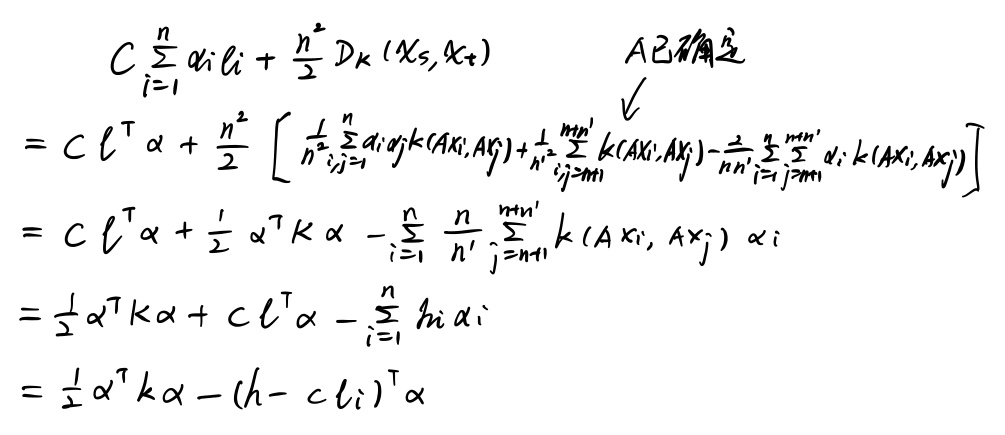 C Σ_{i=1}^{n} αi ℓi + n²/2 D_K (X_s, X_t) A已确定
= C ℓ^T α + n²/2 [ 1/n² Σ_{i,j=1}^{n} αi αj k(Axi, Axj) + 1/n'² Σ_{i,j=n+1}^{n+n'} k(Axi, Axj) - 2/nn' Σ_{i=1}^{n} Σ_{j=n+1}^{n+n'} αi k(Axi, Axj) ]
= C ℓ^T α + 1/2 α^T K α - Σ_{i=1}^{n} n/n' Σ_{j=n+1}^{n+n'} k(Axi, Axj) αi
= 1/2 α^T K α + C ℓ^T α - Σ_{i=1}^{n} hi αi
= 1/2 α^T k α - (h - C ℓi)^T α